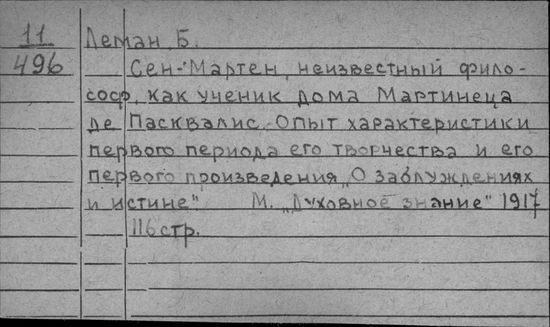 11
496
Леман, Б.
Сен-Мартен, неизвестный фило-
соф, как ученик дома Мартинеца
де Пасквалис. Опыт характеристики
первого периода его творчества и его
первого произведения „О заблуждениях
и истине" М. „Духовное знание" 1917
116 стр.